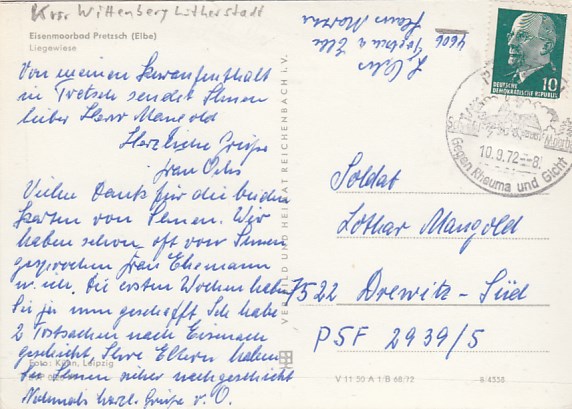 Krs. Wittenberg Lutherstadt
Eisenmoorbad Pretzsch (Elbe)
Liegewiese
Von meinen Kuraufenthalt
in Pretsch sendet Ihnen
lieber Herr Mangold
Herzliche Grüße
Frau Ochs
Vielen Dank für die beiden
Karten von Ihnen. Wir
haben schon oft von Ihnen
gesprochen Frau Ehemann
u. ich. Die ersten Wochen haben
Sie ja nun geschafft. Ich habe
2 Postsachen nach
geschickt, Ihre Eltern haben
sie Ihnen sicher nachgeschickt
Nochmals herzl. Grüße v. O.
Foto: Kühn, Leipzig
VERLAG BILD UND HEIMAT REICHENBACH i. V.
4606
DEUTSCHE DEMOKRATISCHE REPUBLIK
10
10.9.72-8
Gegen Rheuma und Gicht
Soldat
Lothar Mangold
7522 Drewitz-Süd
PSF 2939/5
V 11 50 A 1/B 68/72
8/4558